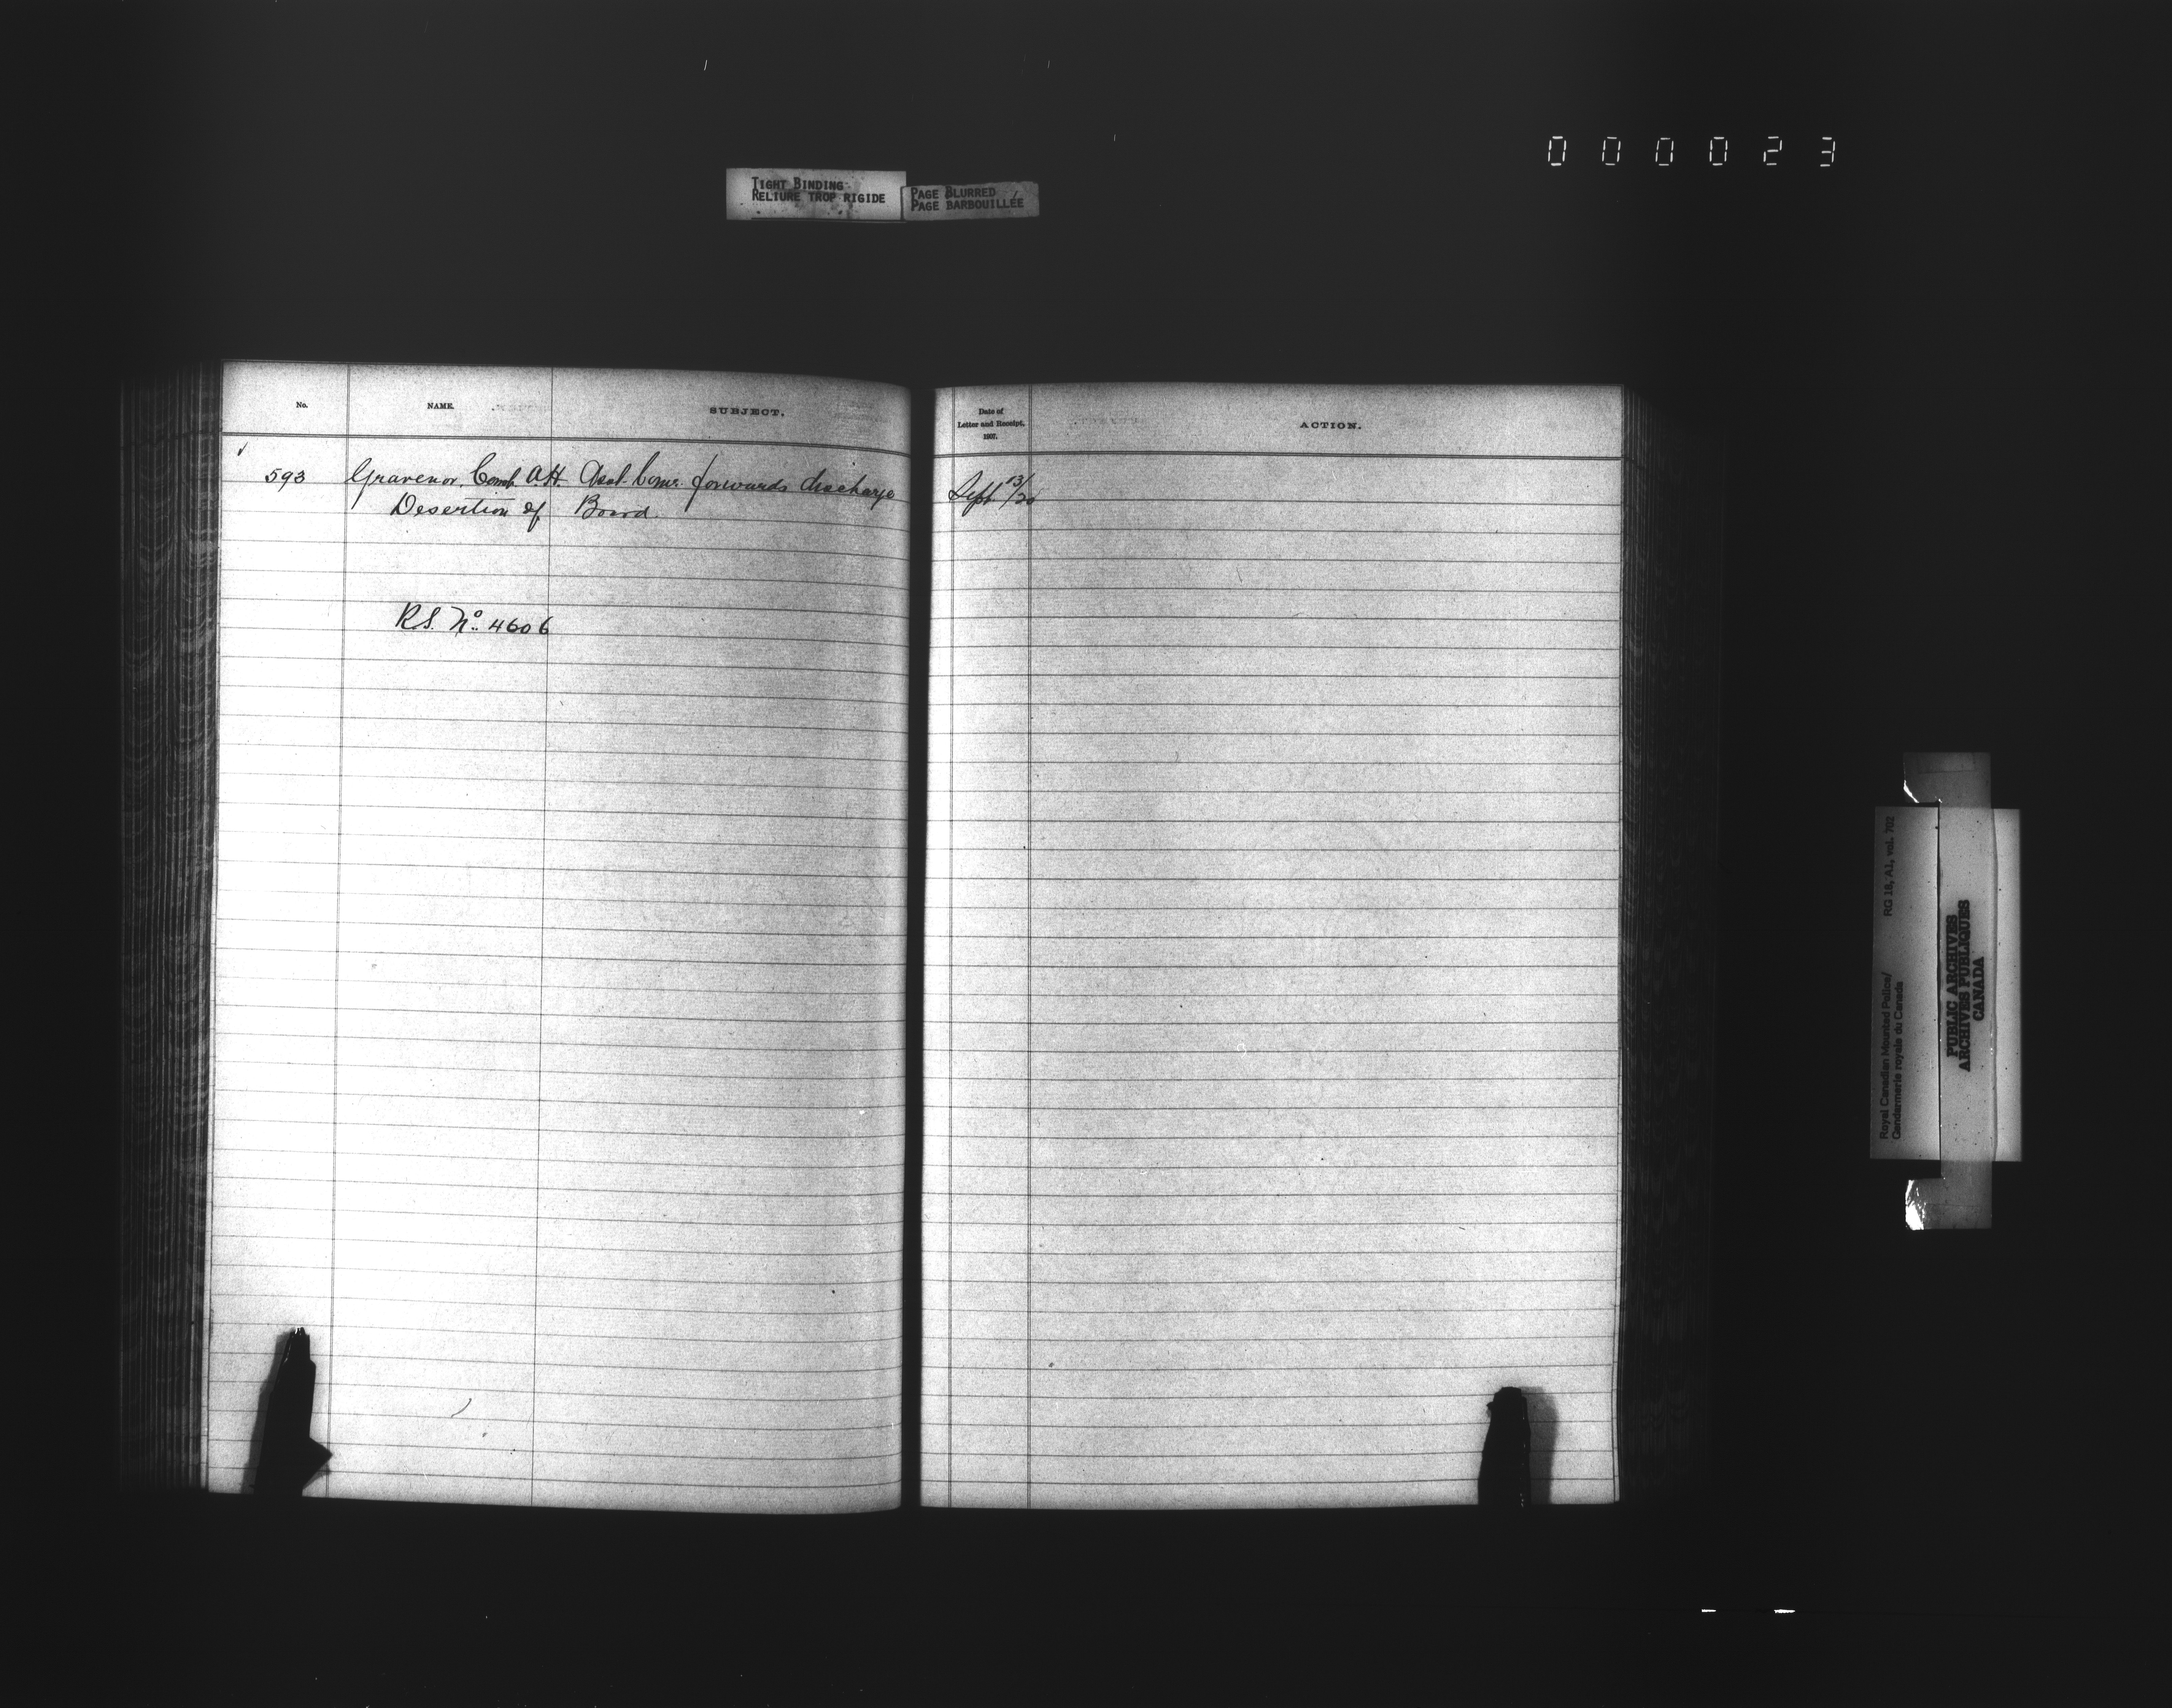 000023
TIGHT BINDING
RELIURE TROP RIGIDE
PAGE BLURRED
PAGE BARBOUILLÉE
No. NAME. SUBJECT.
Date of
Letter and Receipt,
1907.
ACTION.
593 Gravenor, Const. A.H. Asst. Comr. forwards discharge Sept. 13/20
Desertion of Board.
R.S. No. 4606
Royal Canadian Mounted Police/ RG 18, A1, vol. 702
Gendarmerie royale du Canada
PUBLIC ARCHIVES
ARCHIVES PUBLIQUES
CANADA